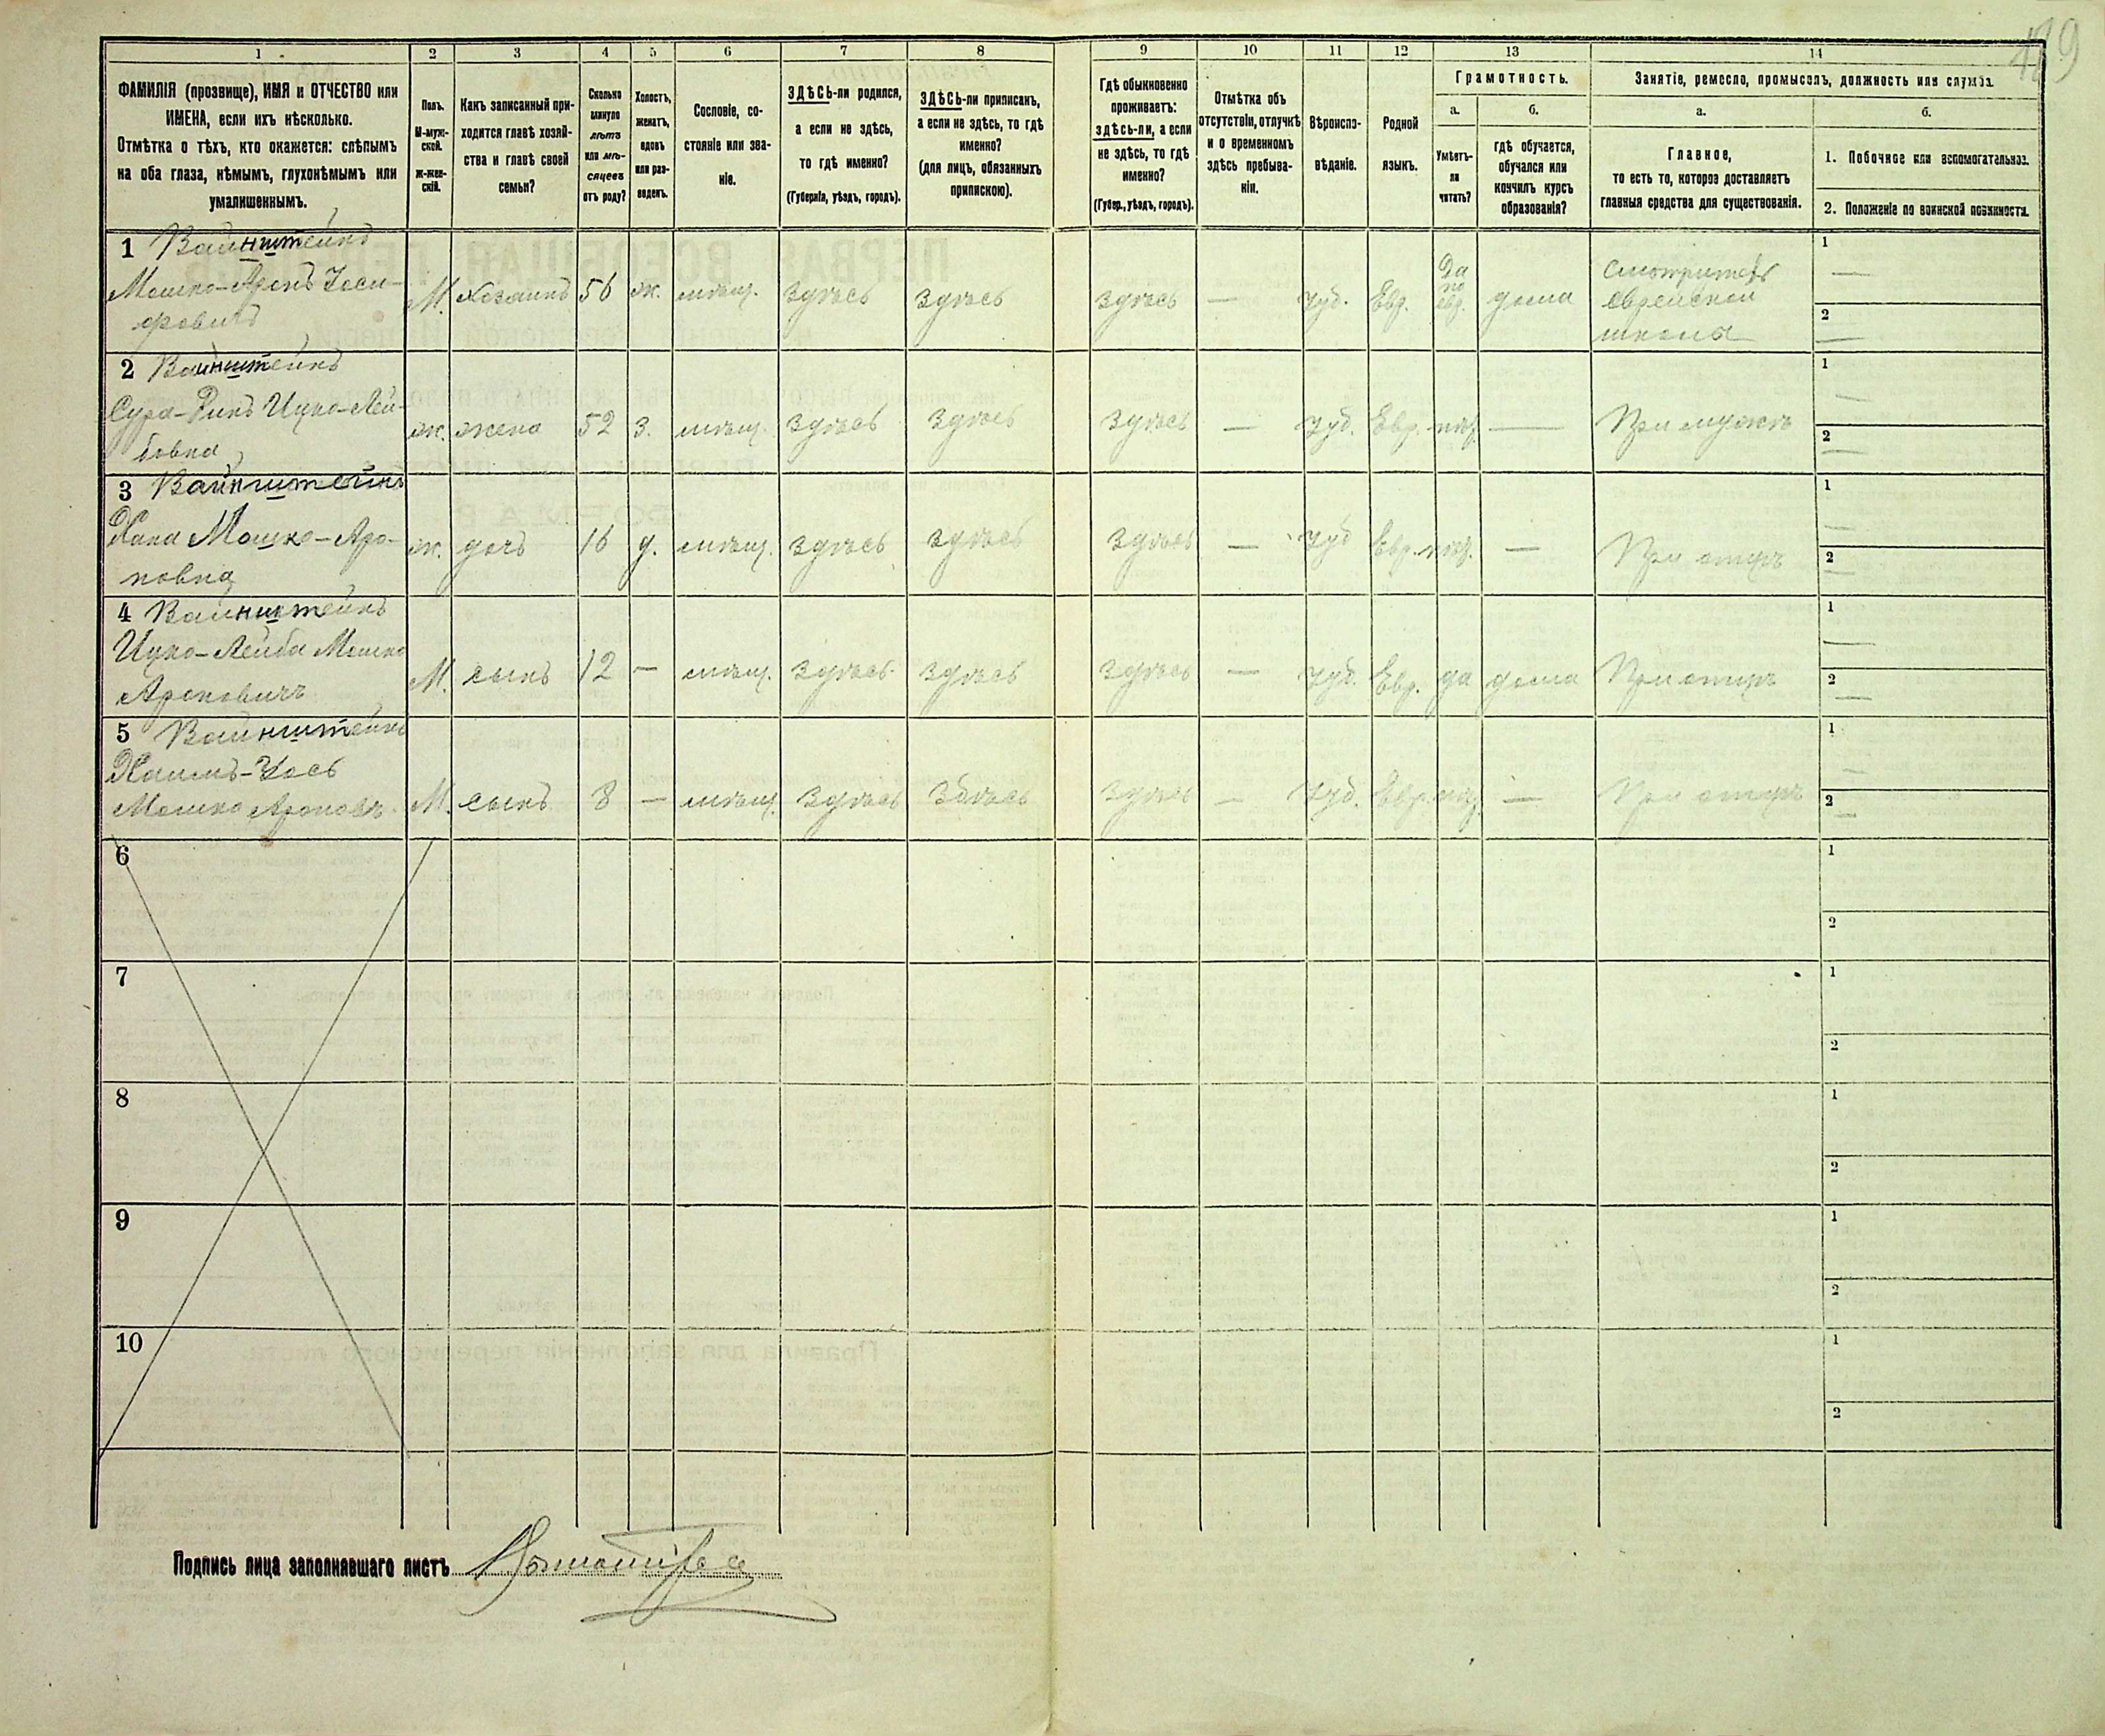 189
1 2 3 4 5 6 7 8 9 10 11 12 13 14
ФАМИЛІЯ (прозвище), ИМЯ и ОТЧЕСТВО или
ИМЕНА, если ихъ нѣсколько.
Отмѣтка о тѣхъ, кто окажется: слѣпымъ
на оба глаза, нѣмымъ, глухонѣмымъ или
умалишеннымъ.
Полъ.
М-муж-
ской.
ж-жен-
скій.
Какъ записанный при-
ходится главѣ хозяй-
ства и главѣ своей
семьи?
Сколько
минуло
лѣтъ
или мѣ-
сяцевъ
отъ роду?
Холостъ,
женатъ,
вдовъ
или раз-
веденъ.
Сословіе, со-
стояніе или зва-
ніе.
ЗДѢСЬ-ли родился,
а если не здѣсь,
то гдѣ именно?
(Губернія, уѣздъ, городъ).
ЗДѢСЬ-ли приписанъ,
а если не здѣсь, то гдѣ
именно?
(для лицъ, обязанныхъ
припискою).
Гдѣ обыкновенно
проживаетъ:
здѣсь-ли, а если
не здѣсь, то гдѣ
именно?
(Губер., уѣздъ, городъ).
Отмѣтка объ
отсутствіи, отлучкѣ
и о временномъ
здѣсь пребыва-
ніи.
Вѣроиспо-
вѣданіе.
Родной
языкъ.
Грамотность.
а. б.
Умѣетъ-
ли
читать?
гдѣ обучается,
обучался или
кончилъ курсъ
образованія?
Занятіе, ремесло, промыселъ, должность или служба.
а. б.
Главное,
то есть то, которое доставляетъ
главныя средства для существованія.
1. Побочное или вспомогательное.
2. Положеніе по воинской повинности.
1 Вайнштейнъ
Мошко-Аронъ Госи-
фовичъ
М. хозяинъ 56 ж. мѣщ. здѣсь здѣсь здѣсь — Іуд. Евр. Да по евр. дома
Смотритель
еврейской
школы
1 —
2 —
2 Вайнштейнъ
Сура-Ривъ Ицко-Лей-
бовна
ж. жена 52 з. мѣщ. здѣсь здѣсь здѣсь — Іуд. Евр. нѣт. — При мужѣ
1 —
2 —
3 Вайнштейнъ
Хана Мошко-Аро-
новна
ж. дочь 16 д. мѣщ. здѣсь здѣсь здѣсь — Іуд Евр. нѣт. — При отцѣ
1 —
2 —
4 Вайнштейнъ
Ицко-Лейба Мошко
Ароновичъ
М. сынъ 12 — мѣщ. здѣсь здѣсь здѣсь — Іуд. Евр. да дома При отцѣ
1 —
2 —
5 Вайнштейнъ
Хаимъ-Іось
Мошко Ароновъ
М. сынъ 8 — мѣщ. здѣсь здѣсь здѣсь — Іуд. Евр. нѣт. — При отцѣ
1 —
2 —
6 1
2
7 1
2
8 1
2
9 1
2
10 1
2
Подпись лица заполнявшаго листъ